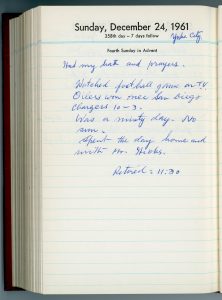 Sunday, December 24, 1961
358th day – 7 days follow
Yuba City
Fourth Sunday in Advent
Had my bath and prayers.
Watched football game on T.V.
Oilers won over San Diego
Chargers 10-3.
Was a misty day. No
sun.
Spent the day home and
with Mr. Hibbs.
Retired = 11:30